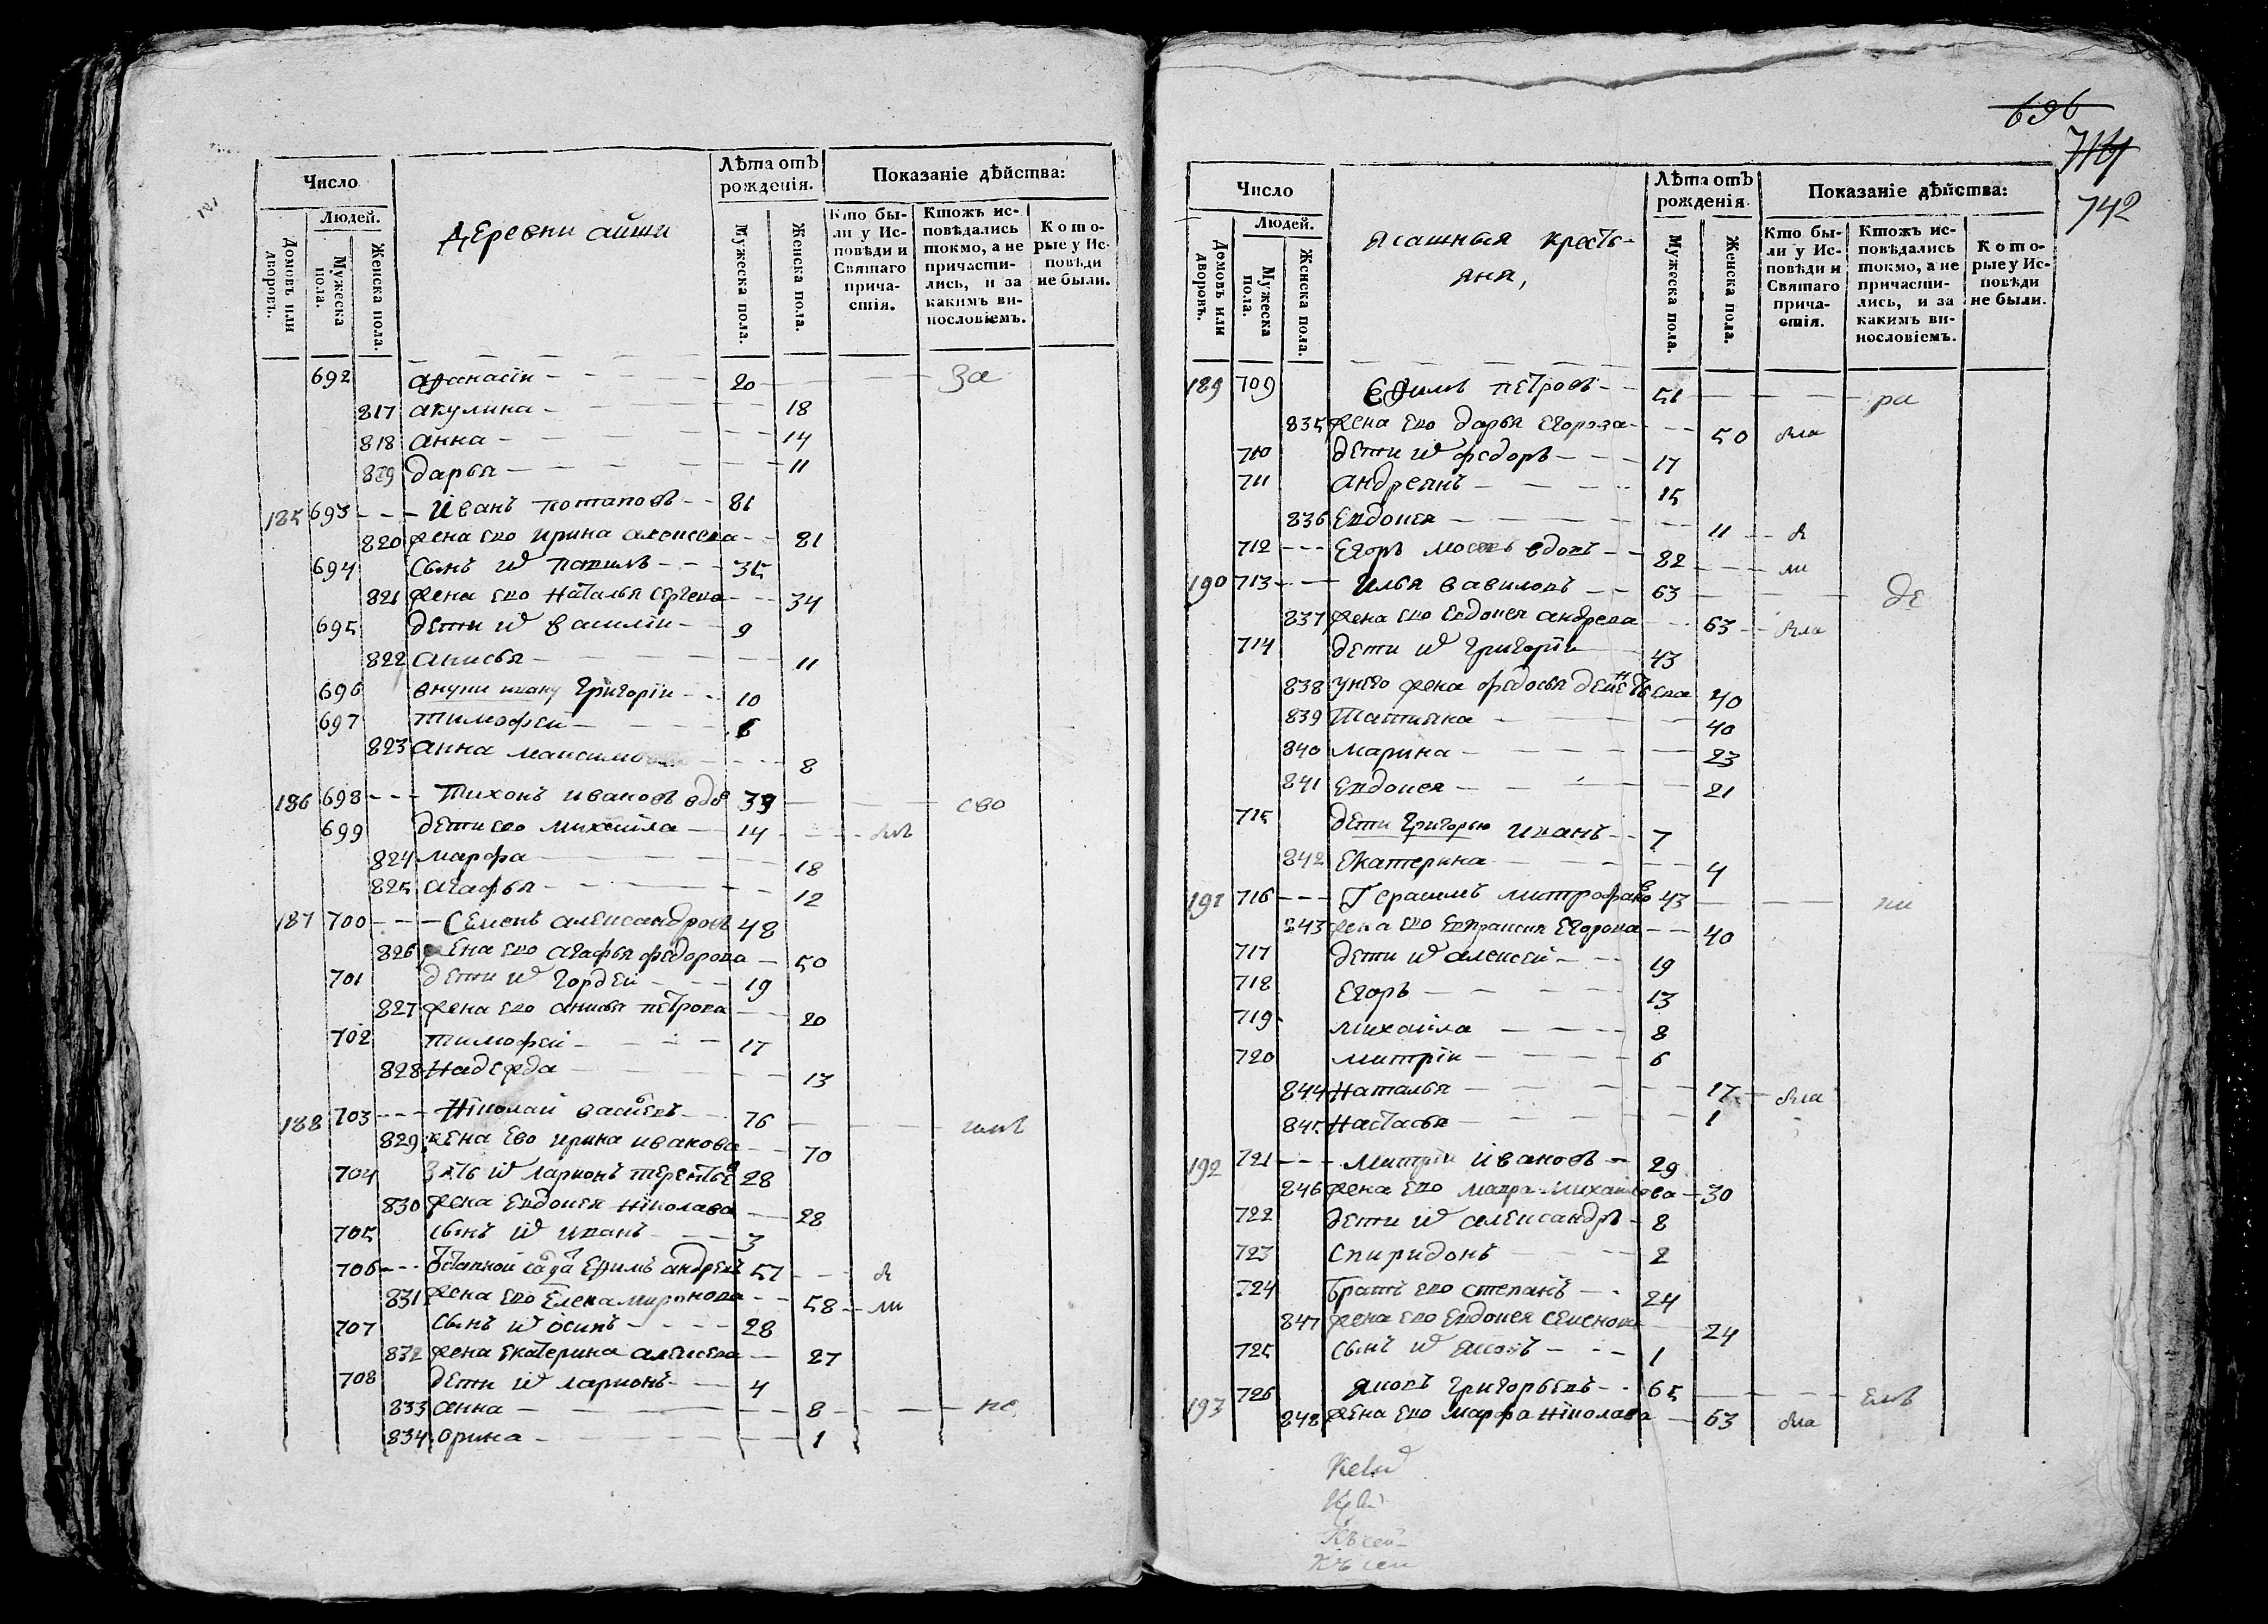 Число
Людей.
Домовъ или дворовъ.
Мужеска пола.
Женска пола.
деревни аиши
Лѣта отъ рожденія.
Мужеска пола.
Женска пола.
Показаніе дѣйства:
Кто бы-
ли у Ис-
повѣди и
Святаго
прича-
стія.
Ктожъ ис-
повѣдались
токмо, а не
причасти-
лись, и за
какимъ ви-
нословіемъ.
Кото-
рые у Ис-
повѣди
не были.
692 афанасіи 20 За
817 акулина 18
818 анна 14
819 дарья 11
185 693 Иванъ потаповъ 81
820 жена ево ирина алексеева 81
694 сынъ их 35
821 жена ево наталья сергеева 34
695 дети их василіи 9
822 анисья 11
696 внуки ивану григоріи 10
697 тимофеи 6
823 анна 8
186 698 тихонъ ивановъ вдов 39 сво
699 дети ево михаила 14 былъ
824 марфа 18
825 агафья 12
187 700 семенъ александровъ 48
826 жена ево агафья федорова 50
701 дети их гордеи 19
827 жена ево анисья петрова 20
702 тимофеи 17
828 надежда 13
188 703 николаи васильевъ 76
829 жена ево ирина иванова 70
704 зять их ларионъ терентьев 28
830 жена евдокея николаева 28
705 сынъ их иванъ 3
706 отставной солдатъ ефимъ андреевъ 57 бы
831 жена ево елена миронова 58 ли
707 сынъ их осипъ 28
832 жена екатерина алексеева 27
708 дети их ларионъ 4
833 анна 8
834 орина 1
696
742
Число
Людей.
Домовъ или дворовъ.
Мужеска пола.
Женска пола.
ясашныя кресть-
яня,
Лѣта отъ рожденія
Мужеска пола.
Женска пола.
Показаніе дѣйства:
Кто бы-
ли у Ис-
повѣди и
Святаго
прича-
стія.
Ктожъ ис-
повѣдались
токмо, а не
причасти-
лись, и за
какимъ ви-
нословіемъ.
Кото-
рые у Ис-
повѣди
не были.
189 709 Ефимъ петровъ 51 ра
835 жена ево дарья егорова 50 была
710 дети их федоръ 17
711 андреянъ 15
836 евдокея 11 бы
712 егоръ вдовъ 82 ли
190 713 илья вавиловъ 63 де
837 жена ево евдокея андреева 63 была
714 дети их григоріи 43
838 у него жена федосья 40
839 татияна 40
840 марина 23
841 евдокея 21
715 дети григорью иванъ 7
842 екатерина 4
191 716 герасимъ митрофанов 43 ни
843 жена ево евпраксия егорова 40
717 дети их алексеи 19
718 егоръ 13
719 михаила 8
720 митріи 6
844 наталья 17 была
845 настасья 1
192 721 митріи ивановъ 29
846 жена ево мавра михаилова 30
722 дети их александръ 8
723 спиридонъ 2
724 братъ ево степанъ 24
847 жена ево евдокея семенова 24
725 сынъ их яковъ 1
193 726 яковъ григорьевъ 65 емъ
848 жена ево марфа николаева 63 была